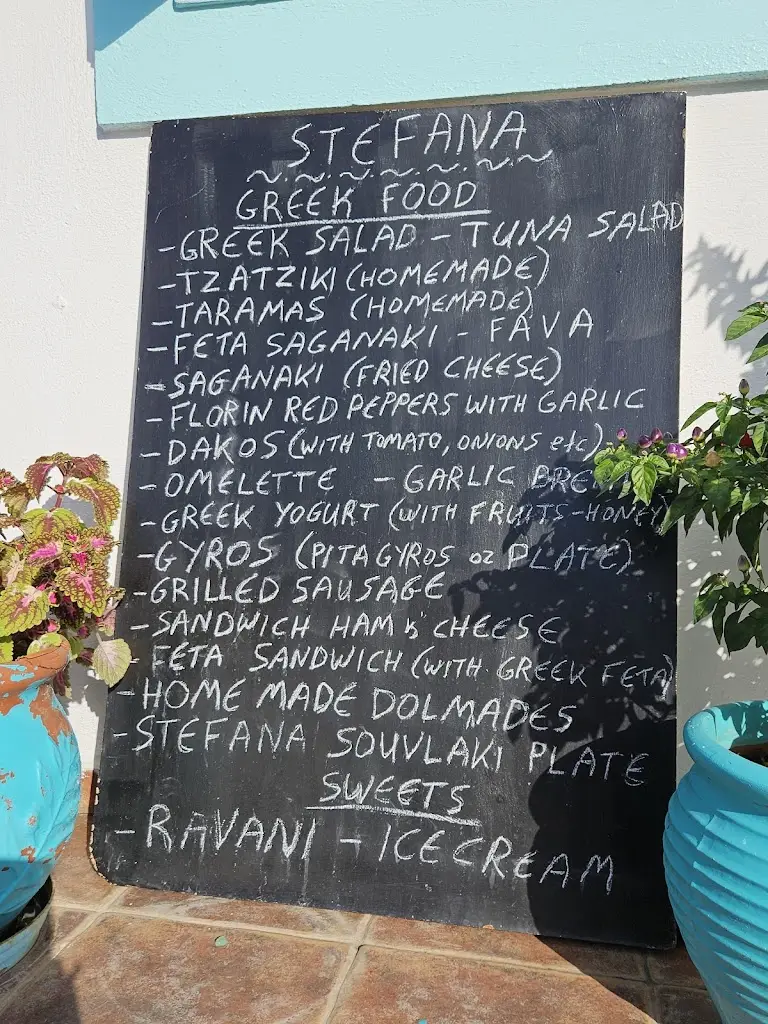 STEFANA
GREEK FOOD
- GREEK SALAD - TUNA SALAD
- TZATZIKI (HOMEMADE)
- TARAMAS (HOMEMADE)
- FETA SAGANAKI - FAVA
- SAGANAKI (FRIED CHEESE)
- FLORIN RED PEPPERS WITH GARLIC
- DAKOS (WITH TOMATO, ONIONS etc)
- OMELETTE - GARLIC
- GREEK YOGURT (WITH FRUITS-HONEY)
- GYROS (PITA GYROS or PLATE)
- GRILLED SAUSAGE
- SANDWICH HAM & CHEESE
- FETA SANDWICH (WITH GREEK FETA)
- HOME MADE DOLMADES
- STEFANA SOUVLAKI PLATE
SWEETS
- RAVANI - ICE CREAM